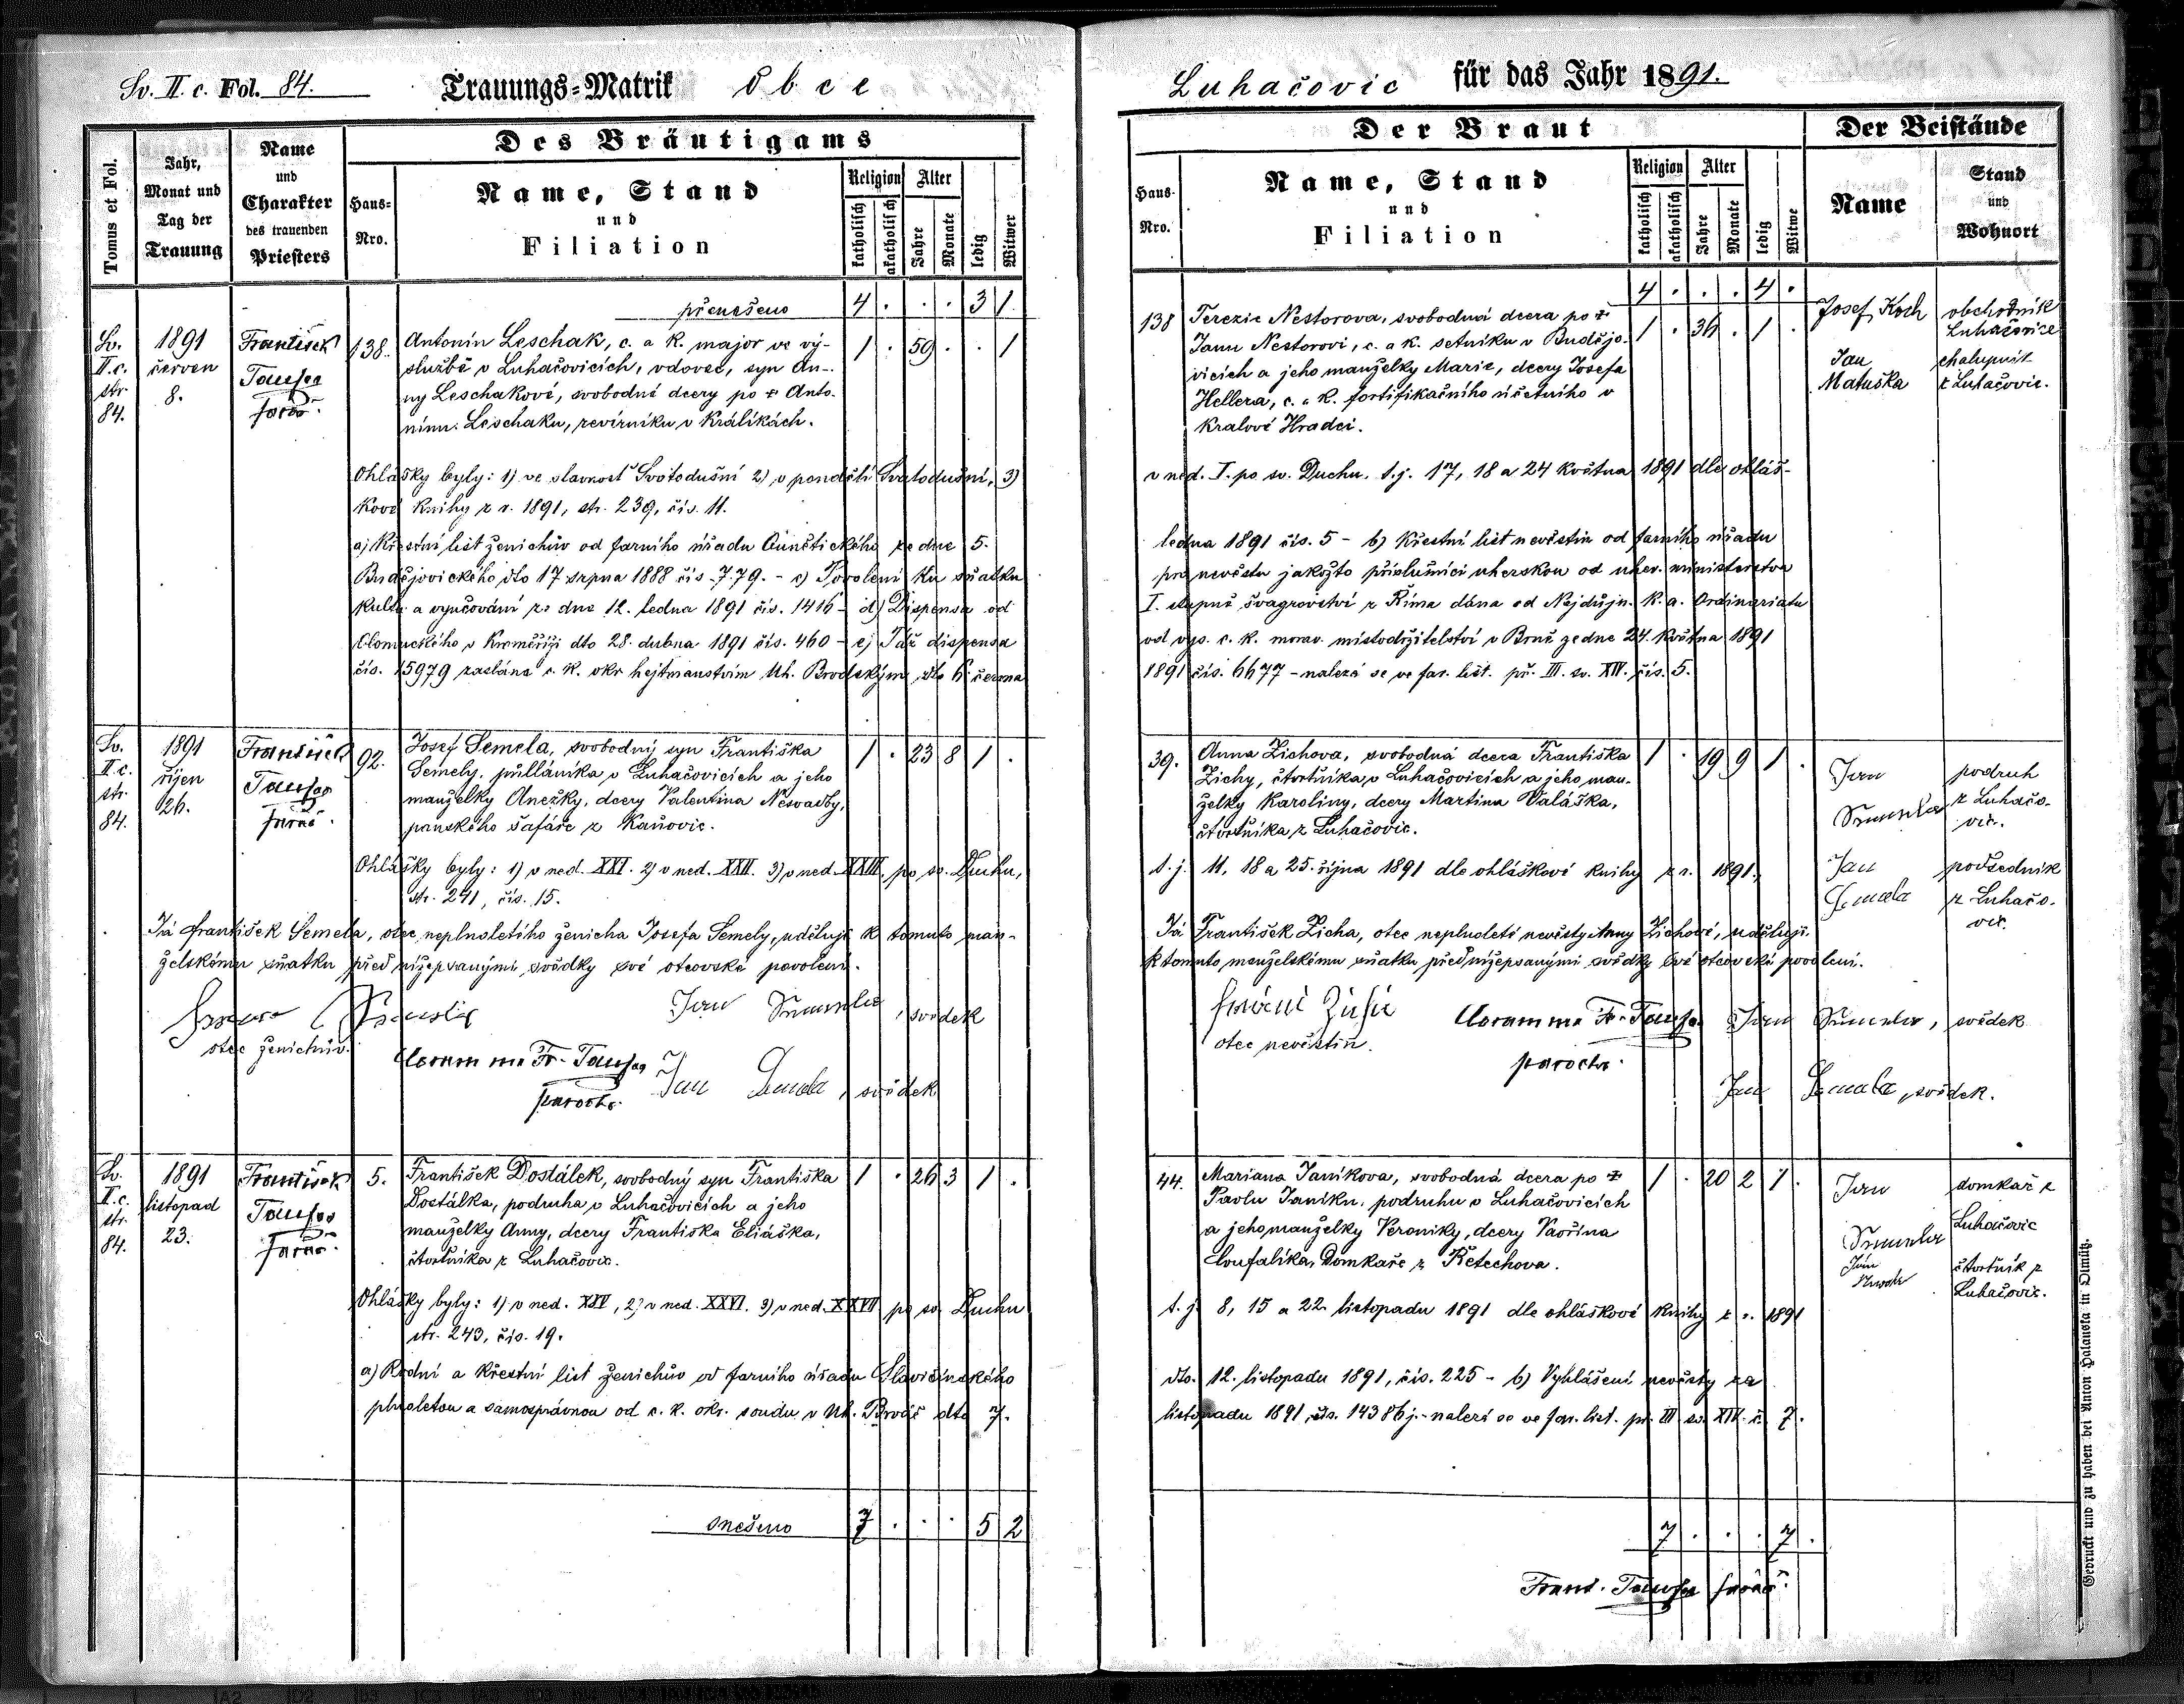 Sv. II. c. Fol. 84.
Trauungs=Matrik obce
Luhačovic für das Jahr 1891.
Tomus et Fol.
Jahr,
Monat und
Tag der
Trauung
Name
und
Charakter
des trauenden
Priesters
Des Bräutigams
Haus=
Nro.
Name, Stand
und
Filiation
Religion
katholisch
akatholisch
Alter
Jahre
Monate
ledig
Witwer
Der Braut
Haus-
Nro.
Name, Stand
und
Filiation
Religion
katholisch
akatholisch
Alter
Jahre
Monate
ledig
Witwe
Der Beistände
Name
Stand
und
Wohnort
přenešeno 4 . . . 3 1
4 . . . 4 .
Sv.
II.c.
str.
84.
1891
červen
8.
František
Taufer
farář.
138.
Antonín Leschak, c. a k. major ve vý-
službě v Luhačovicích, vdovec, syn An-
ny Leschakové, svobodné dcery po ✝ Anto-
nínu Leschaku, revírníku v Králíkách.
1 . 59 . . 1
138
Terezie Nestorova, svobodná dcera po ✝
Janu Nestorovi, c. a k. setníku v Budějo-
vicích a jeho manželky Marie, dcery Josefa
Hellera, c. a k. fortifikačního účetního v
Králové Hradci.
1 . 36 . 1 .
Josef Koch
obchodník
Luhačovice
Jan
Matuška
chalupník
z Luhačovic.
Ohlášky byly: 1) ve slavnosť Svatodušní 2) v pondělí Svatodušní, 3)
v ned. I. po sv. Duchu. t.j. 17, 18 a 24 května 1891 dle ohláš-
kové knihy z r. 1891, str. 239, čís. 11.
a) Křestní list ženichův od farního úřadu Kunětického ze dne 5.
ledna 1891 čís. 5 - b) Křestní list nevěstin od farního úřadu
Budějovického dto 17 srpna 1888 čís. 779. - c) Povolení ku sňatku
pro nevěstu jakožto příslušnici uherskou od uher. ministerstva
kultu a vyučování ze dne 12. ledna 1891 čís. 1416 - d) Dispensa od
I. stupně švagrovství z Říma dána od Nejdůjn. k. a. Ordinariatu
Olomuckého v Kroměříži dto 28. dubna 1891 čís. 460 - e) Táž dispensa
od vys. c. k. morav. místodržitelství v Brně ze dne 24. května 1891
čís. 15979 zaslána c. k. okr hejtmanstvím Uh. Brodským dto 6. června
1891 čís. 6677 - nalezá se ve far. list. př. III. sv. XIV. čís. 5.
Sv.
II.c.
str.
84.
1891
říjen
26.
František
Taufer
farář.
92.
Josef Semela, svobodný syn Františka
Semely, půlláníka v Luhačovicích a jeho
manželky Anežky, dcery Valentina Nesvadby,
panského šafáře z Kaňovic.
1 . 23 8 1 .
39.
Anna Zichova, svobodná dcera Františka
Zichy, čtvrtníka v Luhačovicích a jeho man-
želky Karoliny, dcery Martina Valáška,
čtvrtníka z Luhačovic.
1 . 19 9 1 .
Jan
podruh
z Luhačo-
vic.
Jan
Semela
podsedník
z Luhačo-
vic.
Ohlášky byly: 1) v ned. XXI. 2) v ned. XXII. 3) v ned. XXIII. po sv. Duchu,
t.j. 11, 18 a 25. října 1891 dle ohláškové knihy z r. 1891,
str. 241, čís. 15.
Já František Semela, otec neplnoletého ženicha Josefa Semely, uděluji k tomuto man-
želskému sňatku před nížepsanými svědky své otcovské povolení.
Já František Zicha, otec neplnoleté nevěsty Anny Zichové, uděluji
k tomuto manželskému sňatku před nížepsanými svědky své otcovské povolení.
otec ženichův.
Coram me Fr. Taufer
parochs.
Jan , svědek
Jan Semela, svědek
otec nevěstin.
Coram me Fr. Taufer
parochs.
Jan , svědek
Jan Semela, svědek.
Sv.
II.c.
str.
84.
1891
listopad
23.
František
Taufer
farář.
5.
František Dostálek, svobodný syn Františka
Dostálka, podruha v Luhačovicích a jeho
manželky Anny, dcery Františka Eliáška,
čtvrtníka z Luhačovic.
1 . 26 3 1 .
44.
Mariana Janíkova, svobodná dcera po ✝
Pavlu Janíku, podruhu v Luhačovicích
a jeho manželky Veroniky, dcery Vavřina
Coufalíka, domkaře z Řetechova.
1 . 20 2 1 .
Jan
domkař z
Luhačovic
Jan
čtvrtník z
Luhačovic.
Ohlášky byly: 1) v ned. XXV, 2) v ned. XXVI. 3) v ned. XXVII po sv. Duchu
t.j. 8, 15 a 22. listopadu 1891 dle ohláškové knihy z r. 1891
str. 243, čís. 19.
a) Rodní a křestní list ženichův od farního úřadu Slavičínského
dto. 12. listopadu 1891, čís. 225 - b) Vyhlášení nevěsty za
plnoletou a samosprávnou od c. k. okr. soudu v Uh. Brodě dto 7.
listopadu 1891, čís. 14386 j. - nalezá se ve far. list. př. III sv. XIV. č. 7.
snešeno 7 . . . 5 2
7 . . . 7 .
Frant. Taufer farář.
Gedruckt und zu haben bei Anton Halauska in Olmütz.